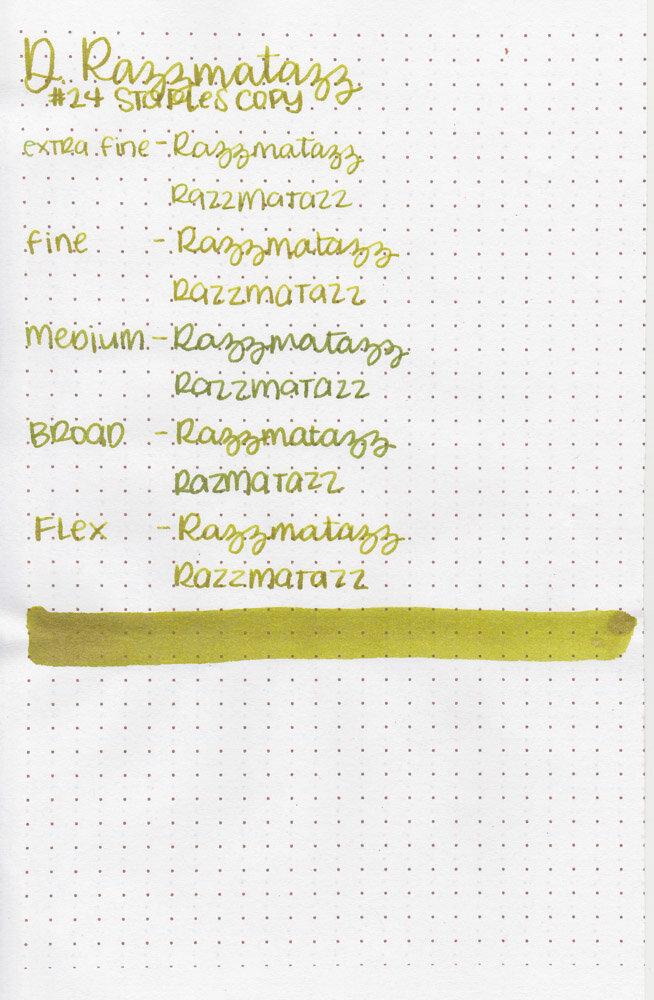 D. Razzmatazz
#24 Staples copy
extra fine - Razzmatazz
Razzmatazz
fine - Razzmatazz
Razzmatazz
Medium - Razzmatazz
Razzmatazz
Broad - Razzmatazz
Razmatazz
Flex - Razzmatazz
Razzmatazz